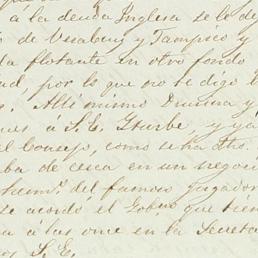 a la deuda Inglesa se le de
de Veracruz y Tampico y
ta flotante en otro fondo
ud, por lo que no te digo
s. Alli mismo Drusina y
nes á S. E. Yturbe, y ya
el Consejo, como se ha dho.
ba de cesca en un negoci
hem.° del famoso jugador
se acordó el Gob.° que tien
a á las once en la Secreta
os S. E.